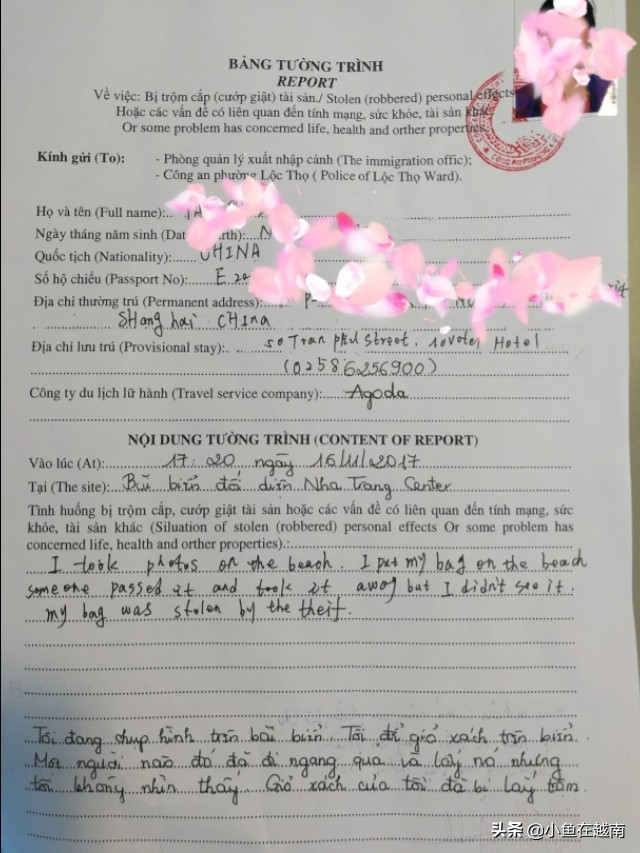 BẢNG TƯỜNG TRÌNH
REPORT
Về việc: Bị trộm cắp (cướp giật) tài sản./ Stolen (robbered) personal effects
Hoặc các vấn đề có liên quan đến tính mạng, sức khỏe, tài sản khác
Or some problem has concerned life, health and orther properties.
Kính gửi (To): - Phòng quản lý xuất nhập cảnh (The immigration offic);
- Công an phường Lộc Thọ ( Police of Lộc Thọ Ward).
Họ và tên (Full name):
Ngày tháng năm sinh (Dat rth): N
Quốc tịch (Nationality): CHINA
Số hộ chiếu (Passport No): E 29
Địa chỉ thường trú (Permanent address): P-
Shang hai CHINA
Địa chỉ lưu trú (Provisional stay): 50 Tran phu street, novotel Hotel
(02586256900)
Công ty du lịch lữ hành (Travel service company): Agoda
NỘI DUNG TƯỜNG TRÌNH (CONTENT OF REPORT)
Vào lúc (At): 17:20 ngày 16/11/2017
Tại (The site): Bãi biển đối diện Nha Trang Center
Tình huống bị trộm cắp, cướp giật tài sản hoặc các vấn đề có liên quan đến tính mạng, sức
khỏe, tài sản khác (Siluation of stolen (robbered) personal effects Or some problem has
concerned life, health and orther properties).:
I took photos on the beach. I put my bag on the beach
someone passed it and took it away but I didn't see it.
my bag was stolen by the theif.
Tôi đang chụp hình trên bãi biển. Tôi để giỏ xách trên biển.
Một người nào đó đã đi ngang qua và lấy nó nhưng
tôi không nhìn thấy. Giỏ xách của tôi đã bị lấy trộm
头条 @小鱼在越南